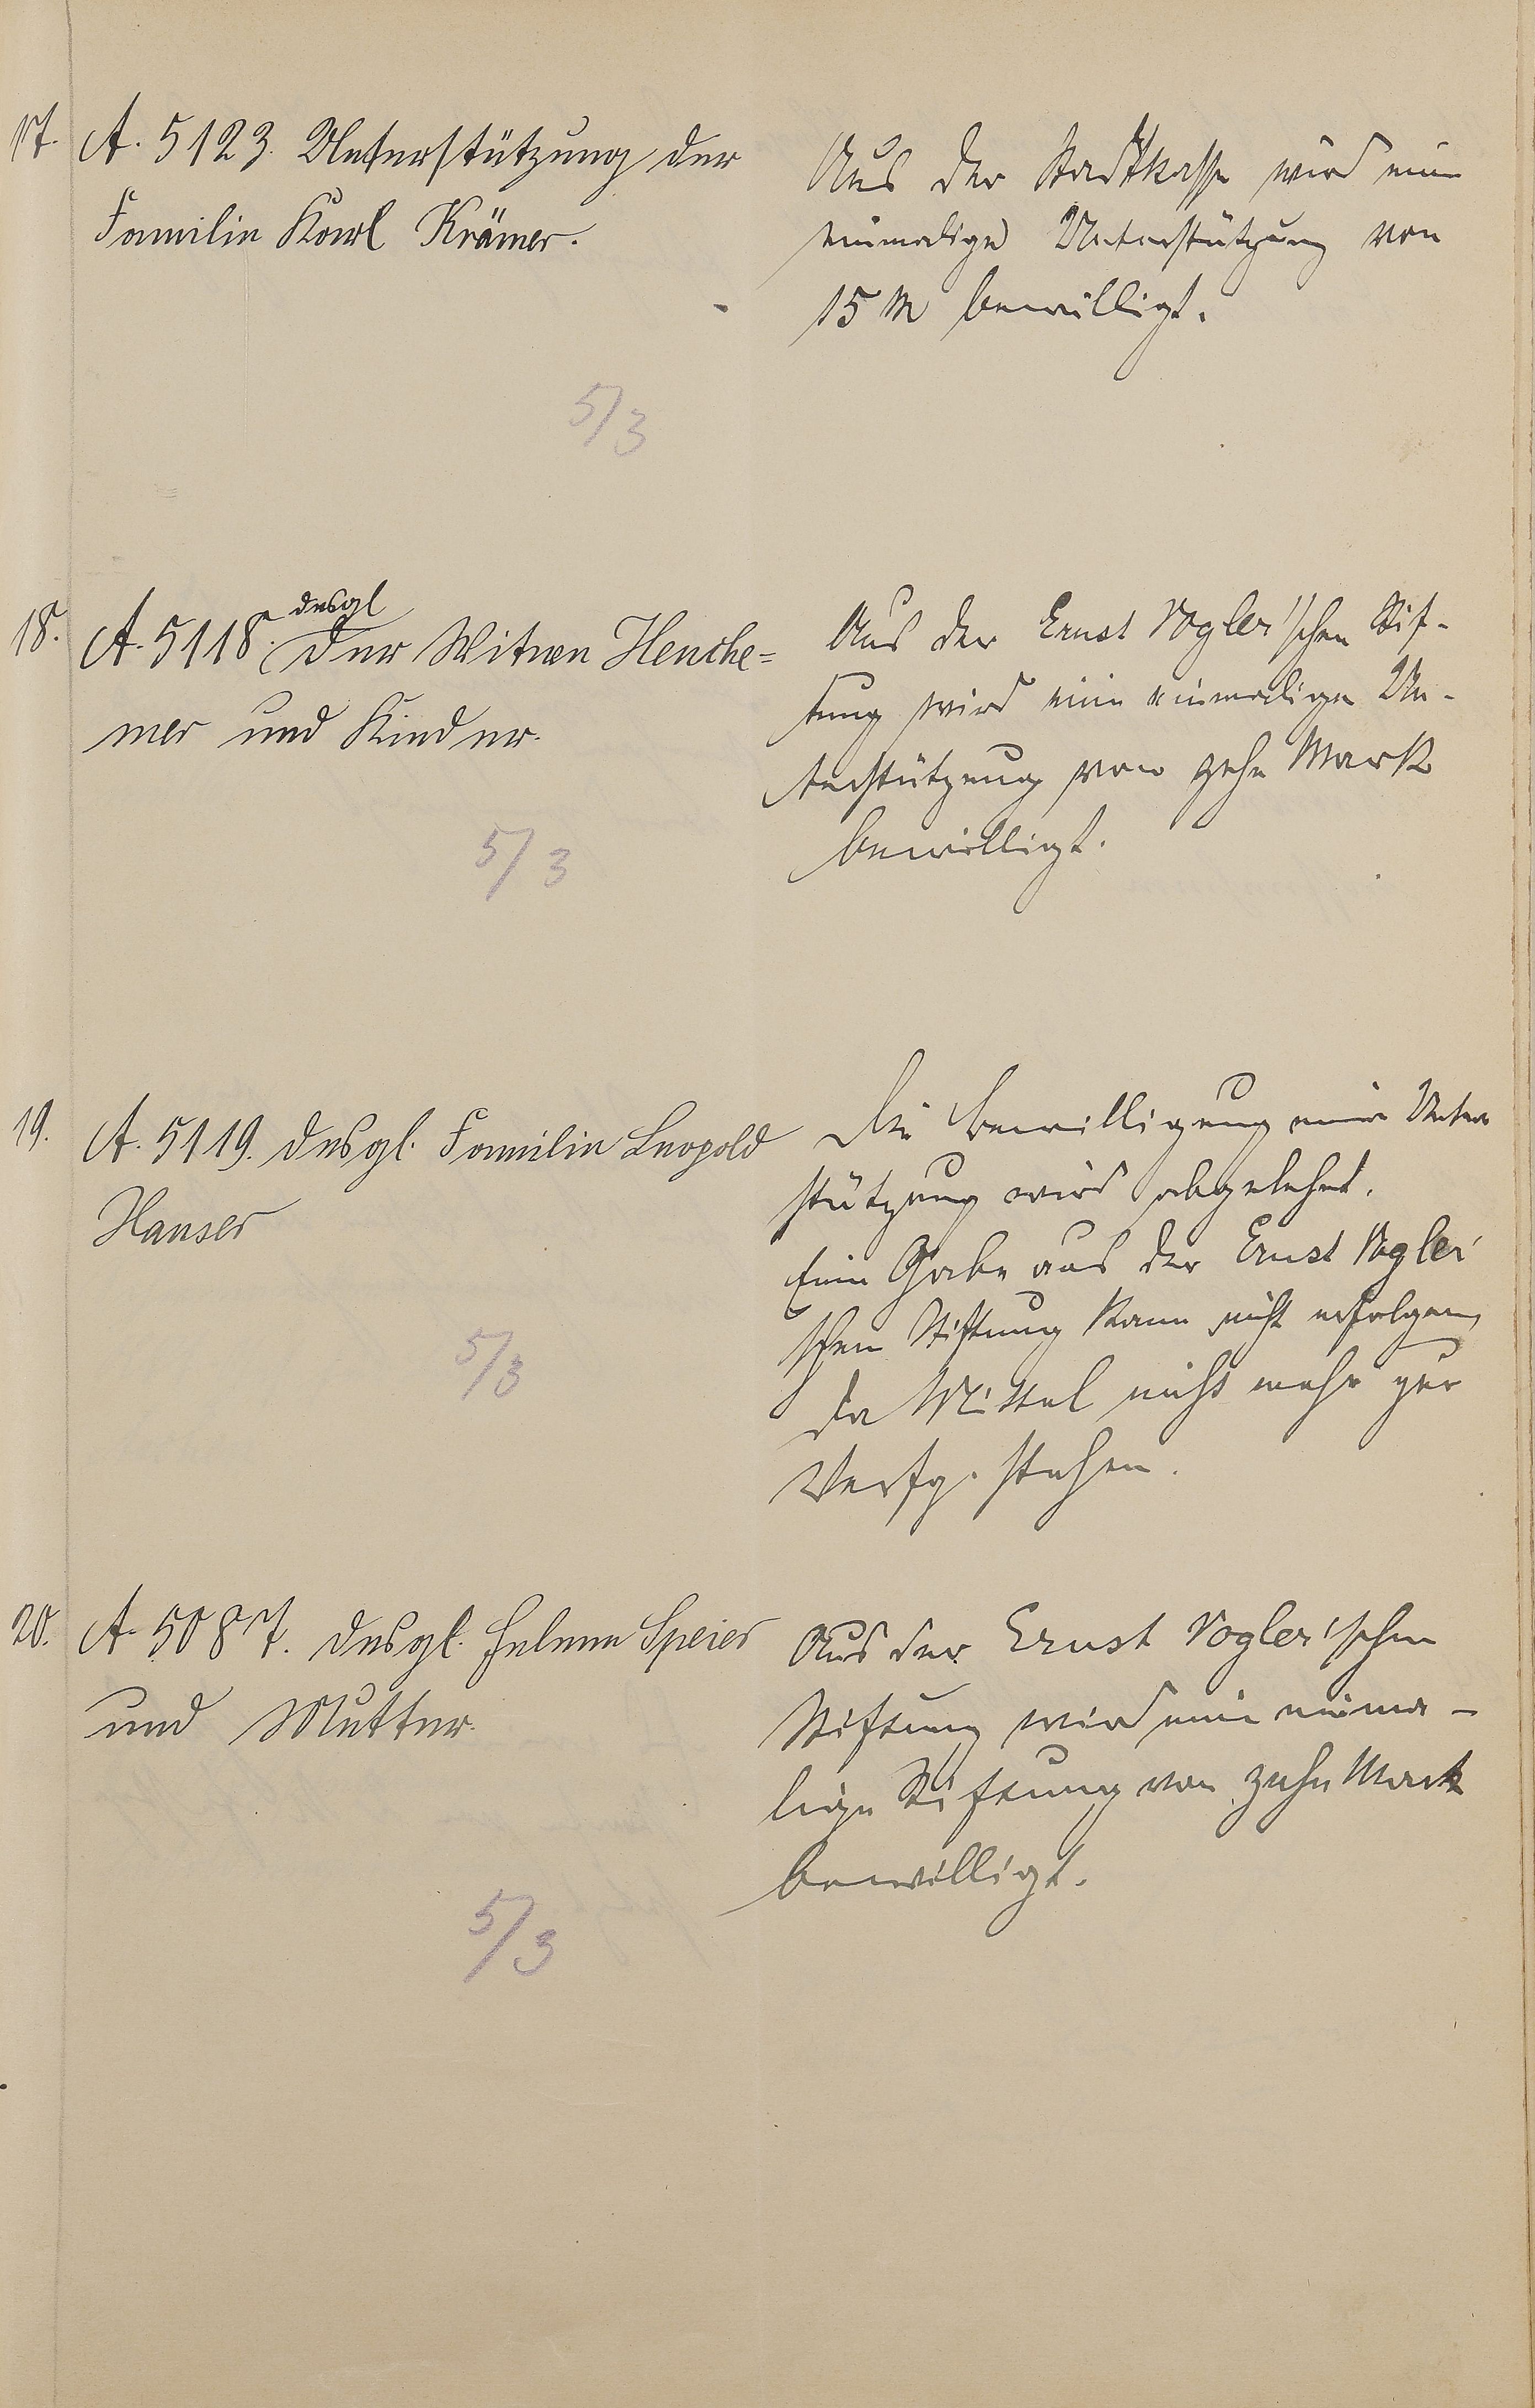 17. A. 5123. Unterstützung der
Familie Karl Krämer.
Aus der Stadtkasse wird eine
einmalige Unterstützung von
15 M bewilligt.
5/3
18. A. 5118. desgl
der Witwe Henche=
mer und Kinder.
Aus der Ernst Vogler'schen Stif-
tung wird eine einmalige Un-
terstützung von zehn Mark
bewilligt.
5/3
19. A. 5119. desgl. Familie Leopold
Hanser
Die Bewilligung einer Unter
stützung wird abgelehnt.
Eine Gabe aus der Ernst Vogler'
schen Stiftung kann nicht erfolgen,
da Mittel nicht mehr zur
Verfg. stehen.
5/3
20. A. 5087. desgl. Helene Speier
und Mutter.
Aus der Ernst Vogler'schen
Stiftung wird eine einma-
lige Stiftung von zehn Mark
bewilligt.
5/3